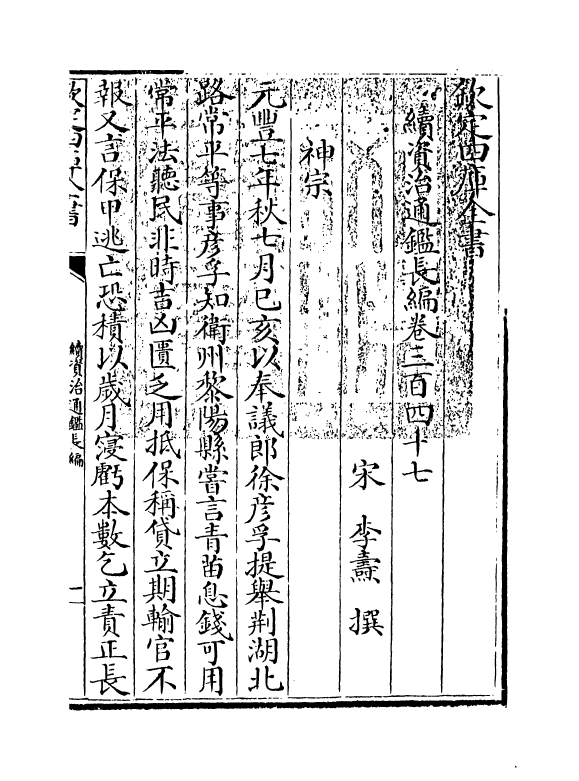 欽定四庫全書
續資治通鑑長編卷三百四十七
宋 李燾 撰
神宗
元豐七年秋七月己亥以奉議郎徐彦孚提舉荆湖北
路常平等事彦孚知衛州黎陽縣嘗言青苗息錢可用
常平法聽民非時吉凶匱乏用抵保稱貸立期輸官不
報又言保甲逃亡恐積以歲月寖虧本數乞立責正長
欽定四庫全書
續資治通鑑長編
一